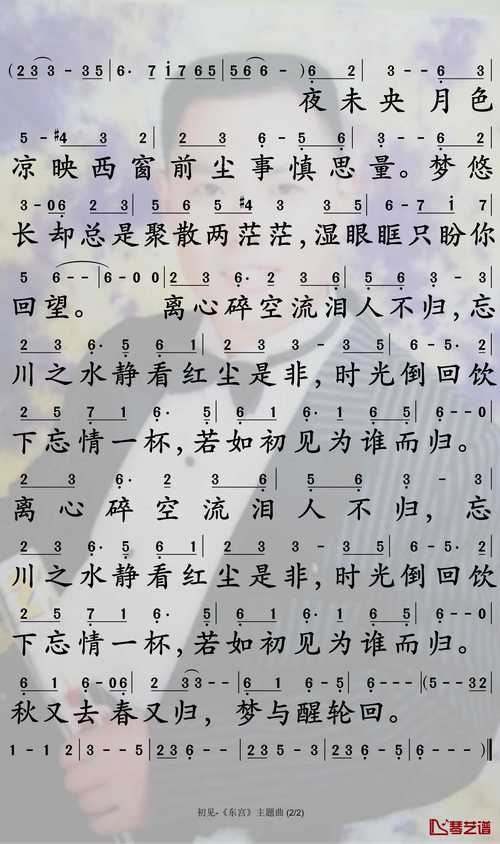 (2 3 3 - 3 5 | 6· 7 i 7 6 5 | 5 6 6 - -) 6 2 | 3 - - 6 3 |
夜未央 月色
5 - #4 3 2 | 2 3 6 - 5 6 | 2 3 2 6 | 3 - - 5 6 |
凉映西窗前尘事慎思量。梦悠
3 - 0 6 2 | 2 3 5 6 5 #4 3 | 2 3 3 5 | 6 - 7 i 7 |
长却总是聚散两茫茫,湿眼眶只盼你
5 6 - - | 6 - 0 0 | 2 3 6· 2 3 6 | 5 6 3 - 3 |
回望。 离心碎空流泪人不归,忘
2 3 6· 5 6 1 | 2 3 3 - 3 5 | 6 - 5· 2 |
川之水静看红尘是非,时光倒回饮
2 5 7 1 6· 5 | 6 1 6· 1 6 5 | 6 - - 0 |
下忘情一杯,若如初见为谁而归。
2 3 6· 2 3 6 | 5 6 3 - 3 |
离心碎空流泪人不归,忘
2 3 6· 5 6 1 | 2 3 3 - 3 5 | 6 - 5· 2 |
川之水静看红尘是非,时光倒回饮
2 5 7 1 6· 5 | 6 1 6· 1 6 5 | 6 - - 0 |
下忘情一杯,若如初见为谁而归。
6 1 6 - 0 6 | 2 3 3 - - | 6 2 3 5 | 6 - - - | (5 - - 3 2 |
秋又去春又归,梦与醒轮回。
1 - 1 2 | 3 - - 5 | 2 3 6 - - | 2 3 5 2 3 6 | 2 3 5 6 2 | 6 - - -) ||
初见-《东宫》主题曲 (2/2)
琴艺谱